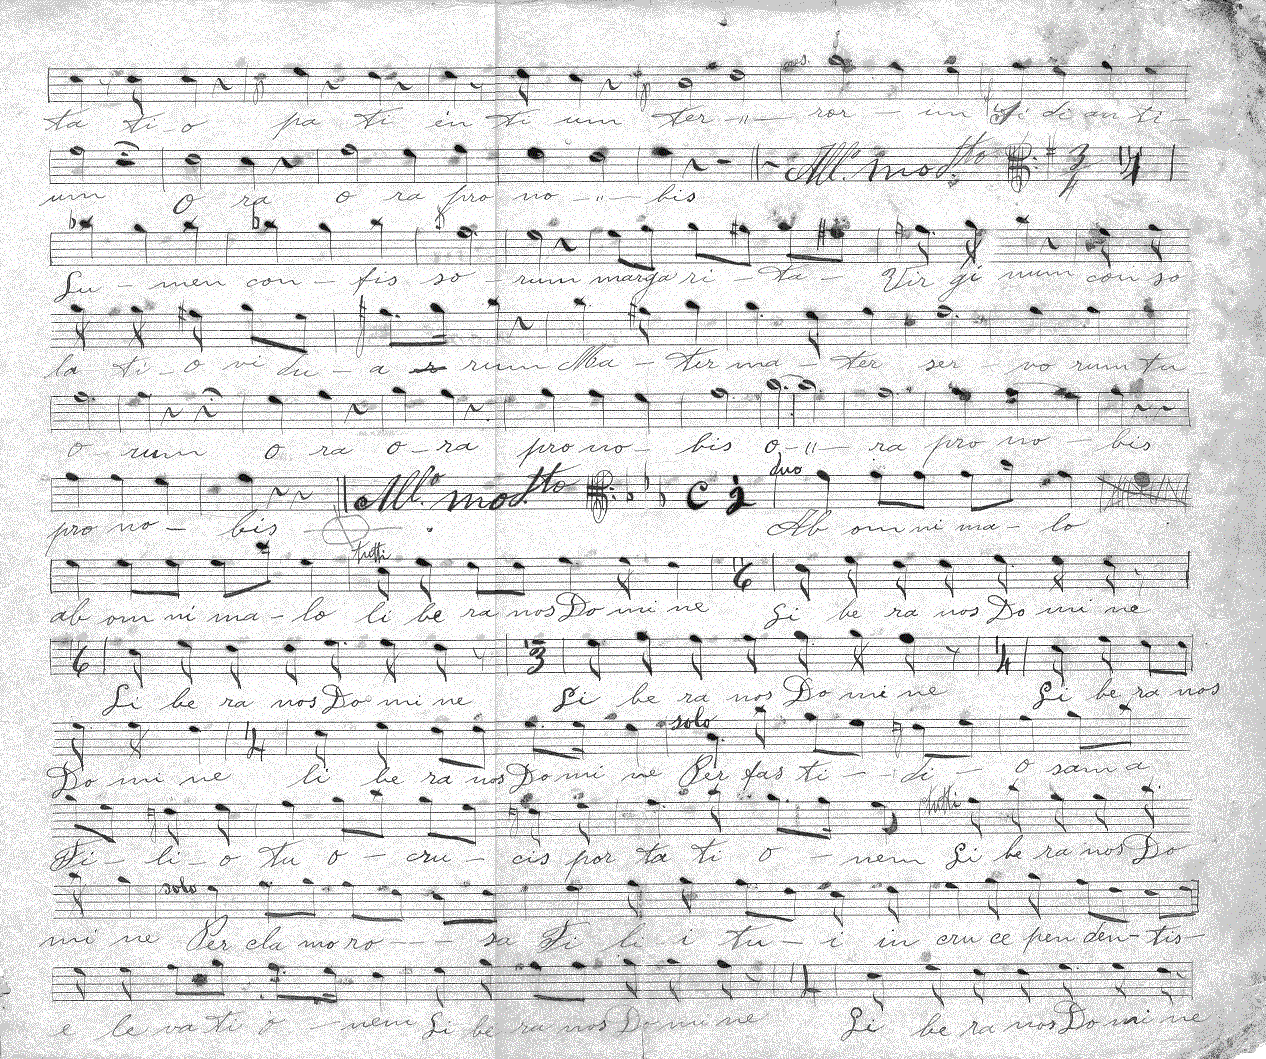 ta ti-o pa ti en ti um ter-"- ror - um Si di an ti-
um O ra O ra pro no -"- bis All.º motto 3 4
Lu - men con - fis so - rum marga ri - ta - Vir gi num con so
la ti - o vi du - a rum Ma - ter ma - ter ser - vo rum tu
o rum O ra O - ra pro no - bis O -"- ra pro no - bis
All.º motto C 2 duo
pro no - bis Ab om ni ma - lo
tutti 6
ab om ni ma - lo li be ra nos Do mi ne Li be ra nos Do mi ne
6 3 4
Li be ra nos Do mi ne Li be ra nos Do mi ne Li be ra nos
4 solo
Do mi ne li be ra nos Do mi ne Per fas ti - di - o sam a
tutti
Fi - li - o tu o - cru - cis por ta ti o - nem Li be ra nos Do
solo
mi ne Per cla mo ro - - - sa Fi li i tu - i in cru ce pen den - tis -
e le va ti o - nem Li be ra nos Do mi ne Li be ra nos Do mi ne